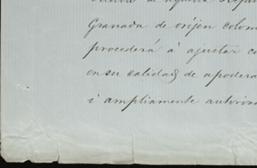 Granada de oríjen colom
procederá á ajustar co
en su calidad de apodera
i ampliamente autoriza